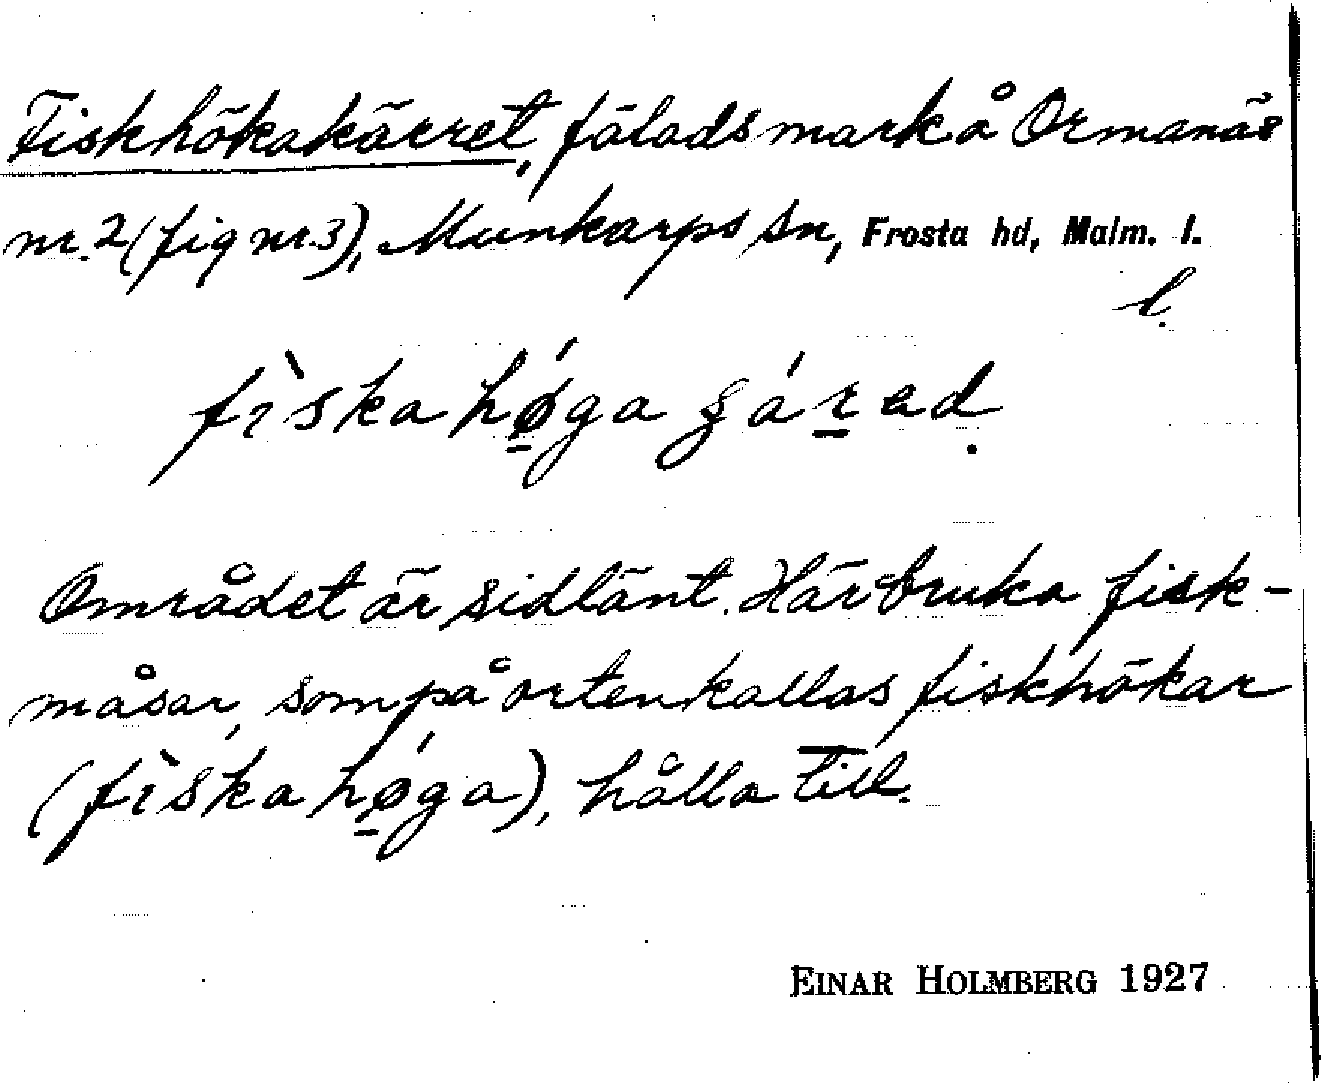 Fiskhökakärret, fäladsmark å Ormanäs
nr. 2 (fig nr. 3), Munkarps sn, Frosta hd, Malm. l.
l.
fìska hǿ̠ga ʒár̠ad.
Området är sidlänt. Här bruka fisk-
måsar, som på orten kallas fiskhökar
(fìska hǿ̠ga), hålla till.
EINAR HOLMBERG 1927